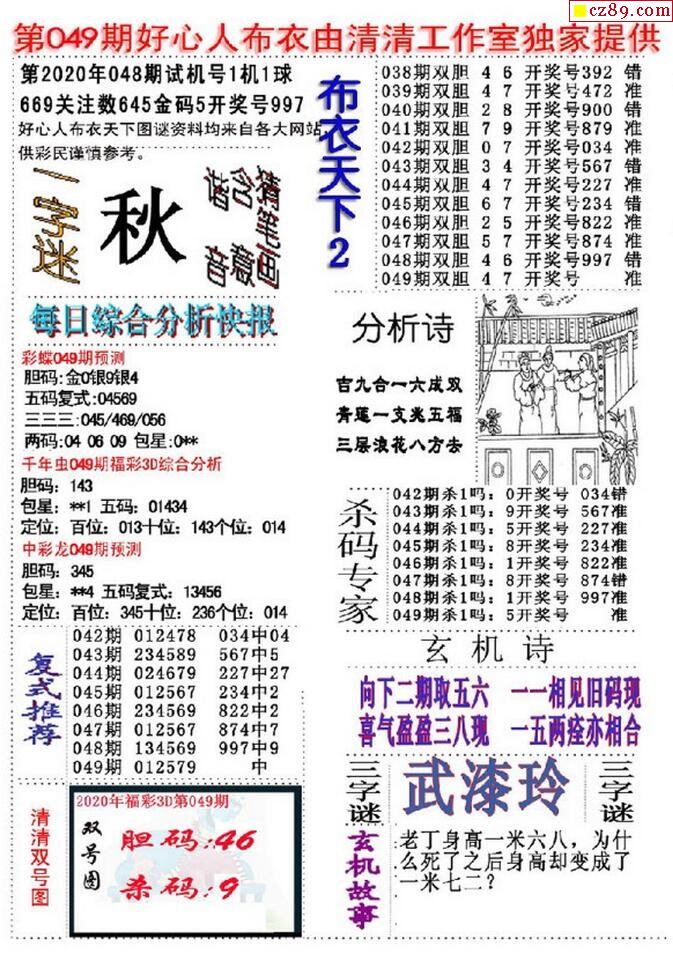 cz89.com
第049期好心人布衣由清清工作室独家提供
第2020年048期试机号1机1球
669关注数645金码5开奖号997
好心人布衣天下图谜资料均来自各大网站
供彩民谨慎参考。
一字迷
秋
谐音
含意
猜笔画
每日综合分析快报
彩蝶049期预测
胆码:金0银9银4
五码复式:04569
三三三:045/469/056
两码:04 06 09 包星:0**
千年虫049期福彩3D综合分析
胆码: 143
包星: **1 五码: 01434
定位: 百位: 013十位: 143个位: 014
中彩龙049期预测
胆码: 345
包星: **4 五码复式: 13456
定位: 百位: 345十位: 236个位: 014
复式推荐
042期 012478 034中04
043期 234589 567中5
044期 024679 227中27
045期 012567 234中2
046期 234569 822中2
047期 012567 874中7
048期 134569 997中9
049期 012579 中
清清双号图
2020年福彩3D第049期
双号图
胆码:46
杀码:9
布衣天下2
038期双胆 4 6 开奖号392 错
039期双胆 4 7 开奖号472 准
040期双胆 2 8 开奖号900 错
041期双胆 7 9 开奖号879 准
042期双胆 0 7 开奖号034 准
043期双胆 3 4 开奖号567 错
044期双胆 4 7 开奖号227 准
045期双胆 6 7 开奖号234 错
046期双胆 2 5 开奖号822 准
047期双胆 5 7 开奖号874 准
048期双胆 4 6 开奖号997 错
049期双胆 4 7 开奖号 准
分析诗
吉九合一六成双
青莲一支兆五福
三层浪花八方去
杀码专家
042期杀1吗: 0开奖号 034错
043期杀1吗: 9开奖号 567准
044期杀1吗: 5开奖号 227准
045期杀1吗: 8开奖号 234准
046期杀1吗: 1开奖号 822准
047期杀1吗: 8开奖号 874错
048期杀1吗: 1开奖号 997准
049期杀1吗: 5开奖号 准
玄机诗
向下二期取五六 一一相见旧码现
喜气盈盈三八现 一五两痊亦相合
三字谜
武漆玲
三字谜
玄机故事
老丁身高一米六八，为什
么死了之后身高却变成了
一米七二？